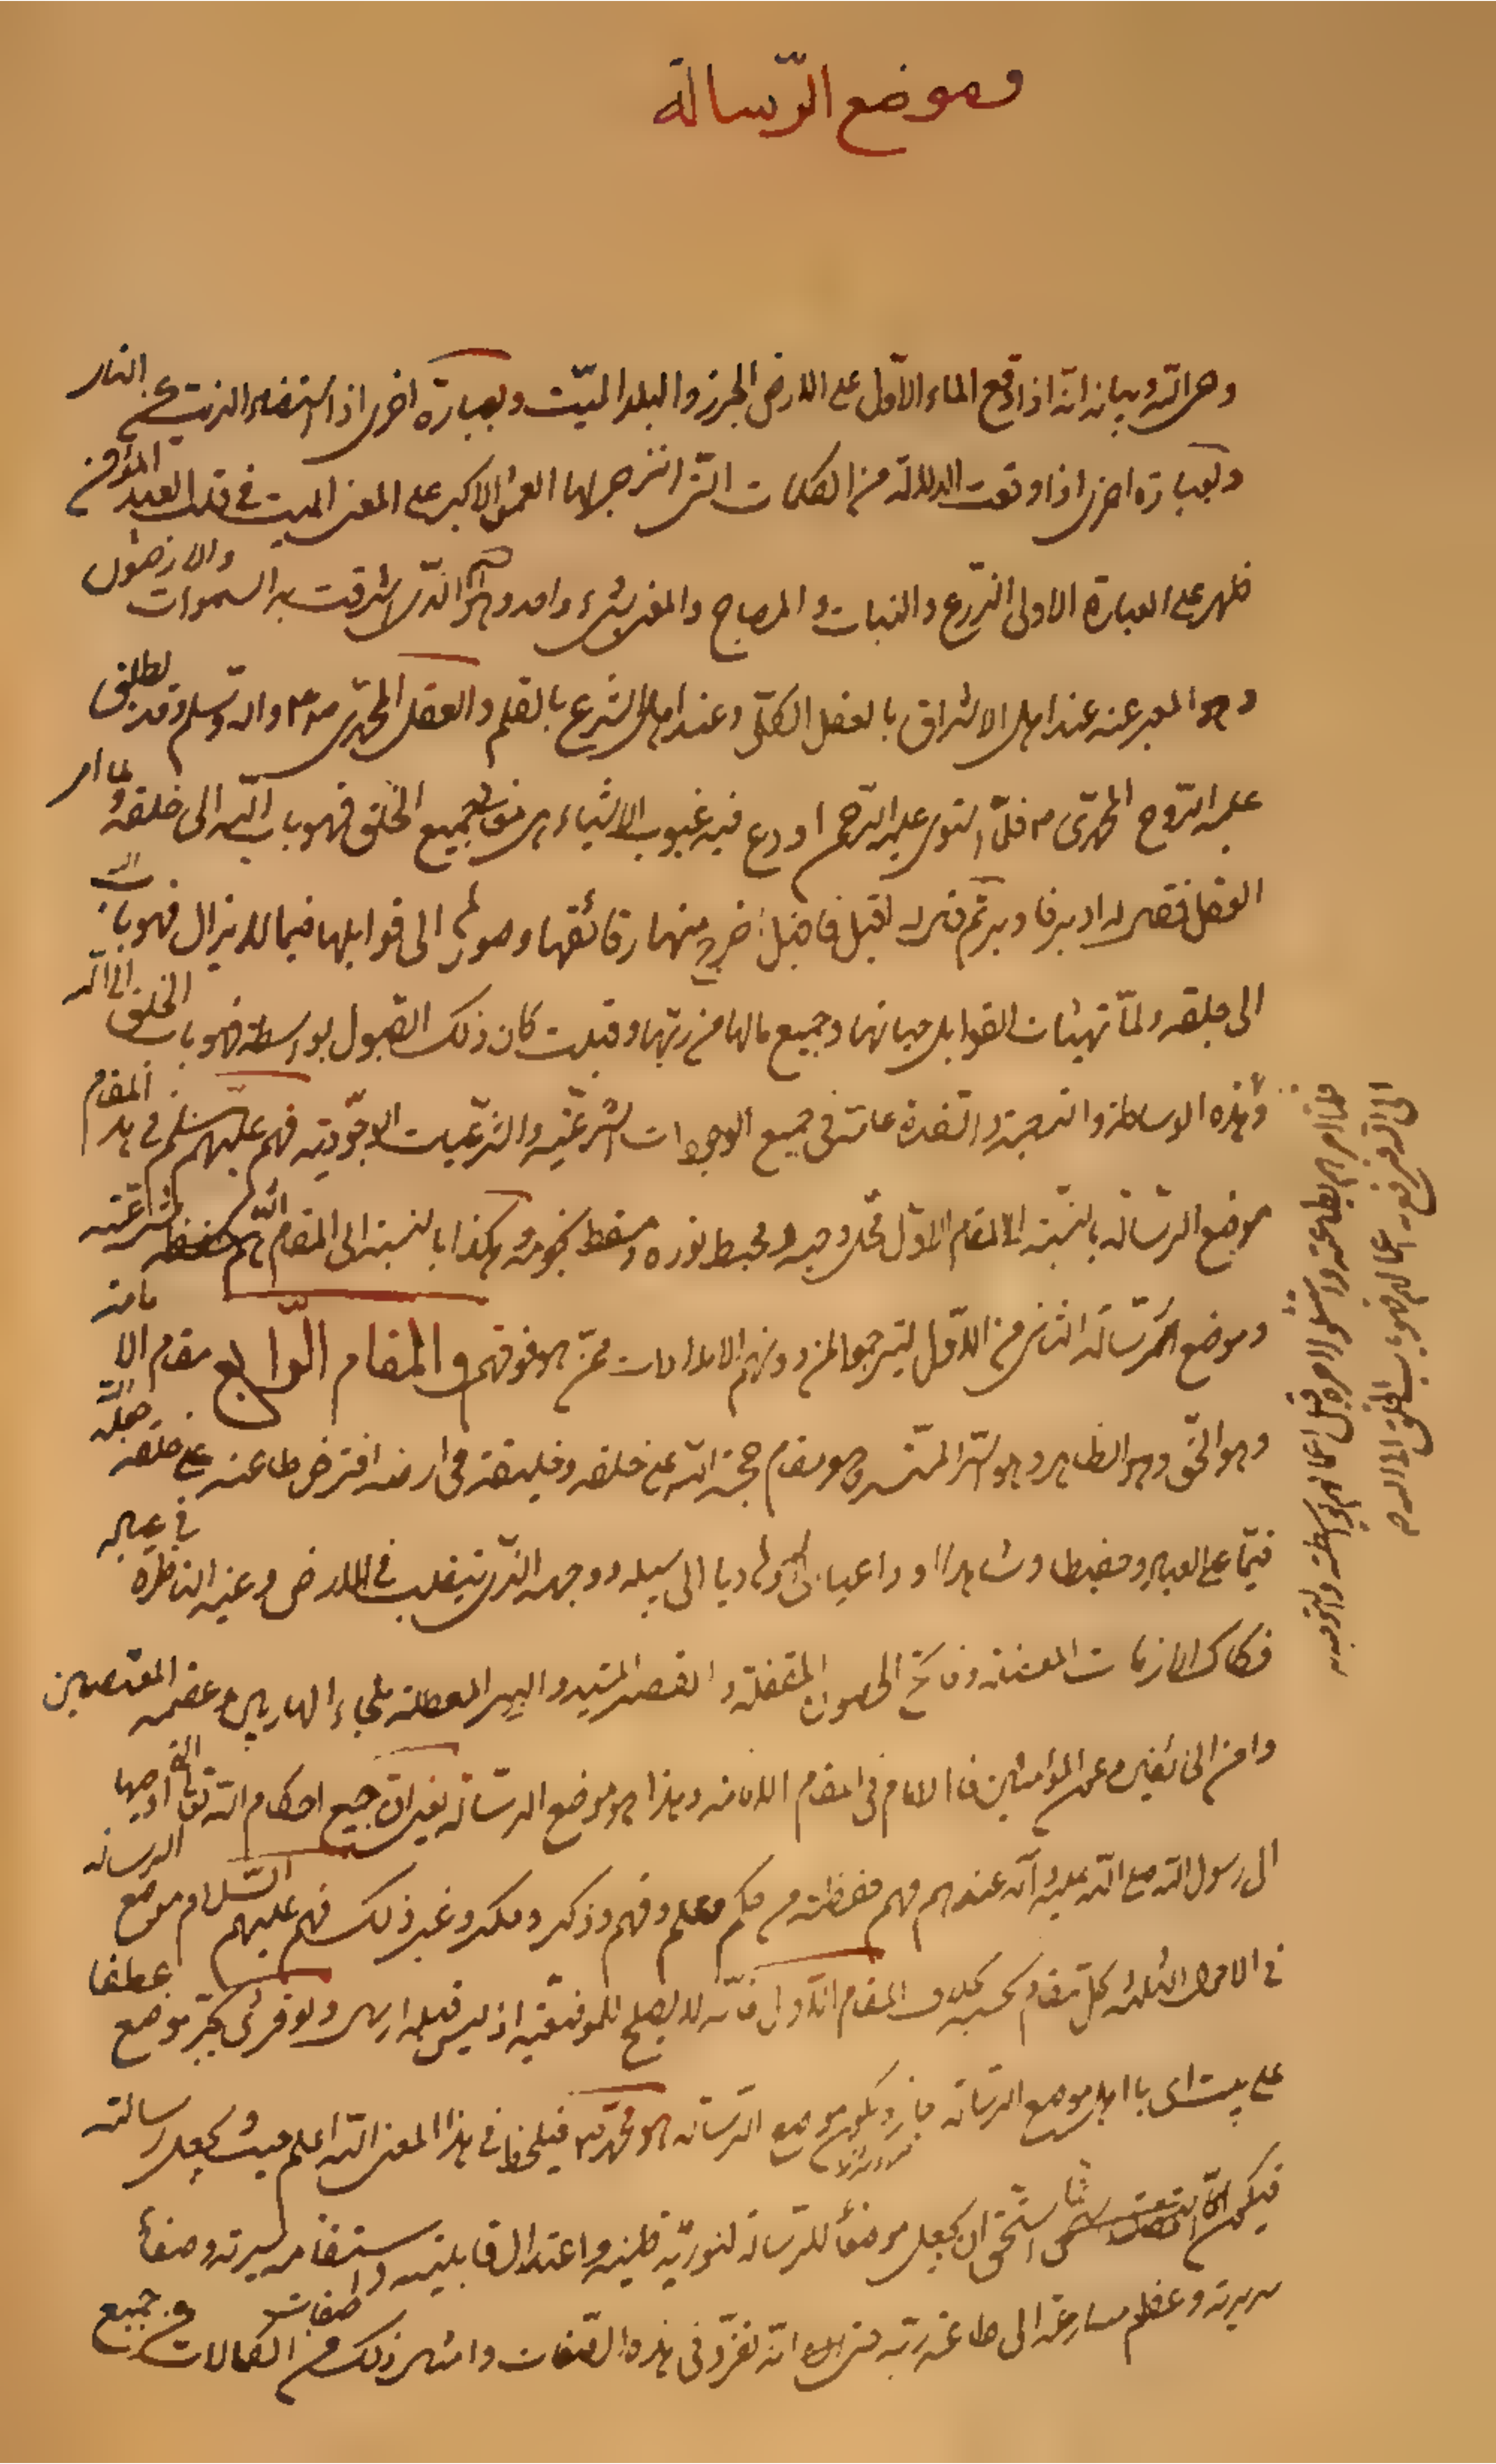 وموضع الرّسالة
وهى اللّه وبيانه انّه اذا وقع الماء الاوّل على الارض الجرز والبلد الميّت وبعبارة اخرى اذا استضاء الزيت عن النار
وبعبارة اخرى اذا وقعت الدلالة من الكلمات التى انزجر لها العمق الاكبر على المعنى الميت فى قلب العبد المؤمن
ظهر على العبارة الاولى الزّرع والنبات والمصباح والمعنى شىء واحد وهو الاسم الّذى اشرقت به السموات والارضون
وهو المعبر عنه عند اهل الاشراق بالعقل الكلّى وعند اهل الشرع بالقلم والعقل المحمّدى ص واله وسلم وقد يطلق
عليه الرّوح المحمّدى ص فلمّا استوى عليه الرّحمن اودع فيه غيوب الاشياء من جميع الخلق فهو باب اللّه الى خلقه ولما امر
العقل فقال له ادبر فادبر ثم قال له اقبل فاقبل اخرج منها رقائقها وصورها الى قوابلها فيما لا يزال فهو باب اللّه
الى خلقه ولمّا تهيئات القوابل حياتها وجميع مالها من ربّها وقبلت كان ذلك القبول بواسطته فهو باب الخلق الى اللّه
وهذه الوساطة والترجمة والتقدمة عامة فى جميع الوجودات الشرعيّة والشرعيات الوجوديّة فهم عليهم السلم فى هذا المقام
موضع الرّسالة بالنسبة الى المقام الاوّل محل وحيه ومهبط نوره ومسقط نجومه وهكذا بالنسبة الى المقام الثانى حفظة شرعيّته
وموضع الرّسالة الثانى من الاوّل ليترجموا لمن دونهم الامدادات ممّن هو فوقهم والمقام الرّابع مقام الامامة
وهو الحقّ وهو الظاهر وهو السّر المقنّع وهو مقام حجّة اللّه على خلقه وخليفته فى ارضه افترض طاعته على خلقه جعله اللّه
قيّما على العباد وحفيظا وشاهدا وداعيا الى اللّه وهاديا الى سبيله ووجهه الّذى يتقلب فى الارض وعينه الناظرة فى عباده
فكاك الازمات المعضلة وفاتح الحصون المقفلة والقصر المشيد والبير المعطلة ملجاء الهاربين وعصمة المعتصمين
وامن الخائفين وعون المؤمنين فالامام فى المقام الامامة وهذا هو موضع الرّسالة يعنى انّ جميع احكام اللّه تعالى التى اوحيها
الى رسول اللّه صلى اللّه عليه وآله عندهم فهم حفظته من حكم وعلم وفهم وذكر وفكر وغير ذلك فهم عليهم السّلام موضع الرسالة
فى الاحوال الثلاثة كلّ مقام بحسبه بخلاف المقام الاوّل فانّه لا يصلح للموضعيّة اذ ليس قبله ارسال ولو قرئ بجرّ موضع عطفا
على بيت اى يا اهل موضع الرّسالة جاز ويكون موضع الرّسالة هو محمّد ص فيلحظ فى هذا المعنى اللّه اعلم حيث يجعل رسالته
فيكون انّما استحقّ ان يجعل موضعا للرّسالة لنوريّة طينته واعتدال قابليته واستقامة سيرته وصفاء
سريرته وعظم مسارعته الى طاعة ربّه حتى انّه تفرّد فى هذه الصّفات وامثال ذلك من صفات الكمالات وجميع
فلما امرهم بطاعته وامتثلوا لامره قبل اعمالهم بواسطته والتوجه به
الى اللّه فترفع به اعمالهم فهو باب الخلق الى اللّه ص